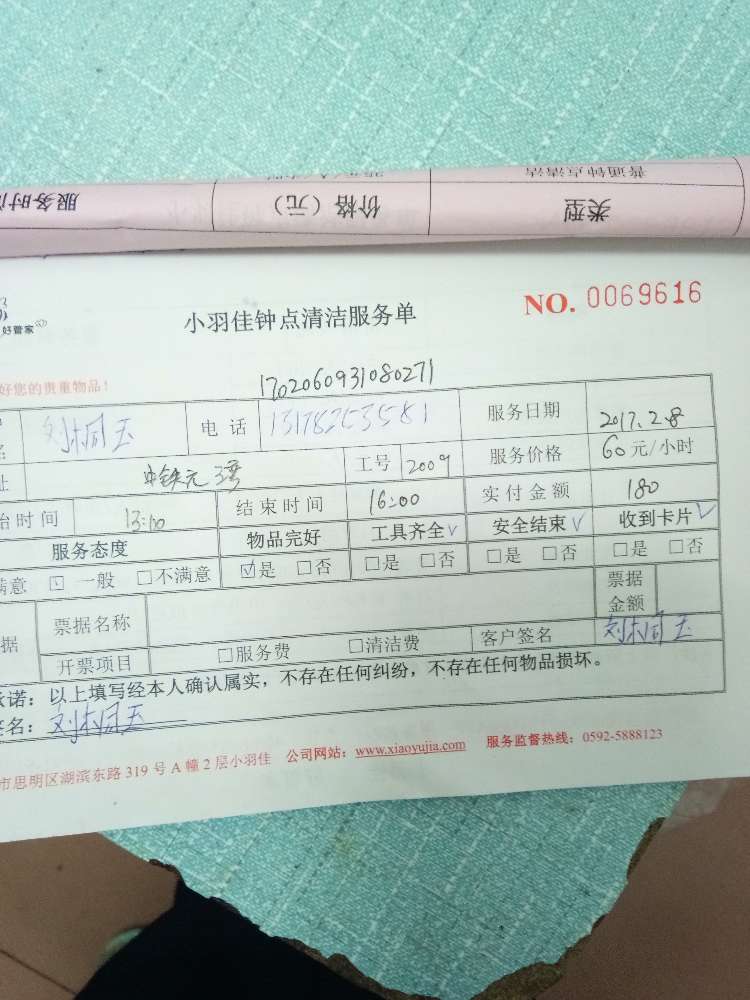 普通钟点清洁
类型 价格（元） 服务时
好管家
小羽佳钟点清洁服务单 NO. 0069616
好您的贵重物品！
1702060931080271
刘桐玉 电话 13178253581 服务日期 2017.2.8
址 中铁元湾 工号 2009 服务价格 60元/小时
始时间 13:00 结束时间 16:00 实付金额 180
服务态度 物品完好 工具齐全√ 安全结束√ 收到卡片√
满意 ☑一般 □不满意 ☑是 □否 □是 □否 □是 □否 □是 □否
据 票据名称 票据金额
开票项目 □服务费 □清洁费 客户签名 刘桐玉
承诺：以上填写经本人确认属实，不存在任何纠纷，不存在任何物品损坏。
签名：刘桐玉
市思明区湖滨东路319号A幢2层小羽佳 公司网站：www.xiaoyujia.com 服务监督热线：0592-5888123